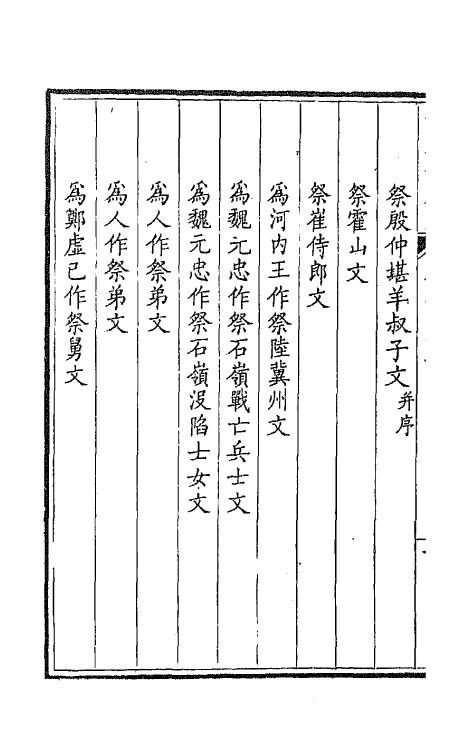 祭殷仲堪羊叔子文并序
祭霍山文
祭崔侍郎文
為河内王作祭陸冀州文
為魏元忠作祭石嶺戰亡兵士文
為魏元忠作祭石嶺沒陷士女文
為人作祭弟文
為人作祭弟文
為鄭虛己作祭舅文